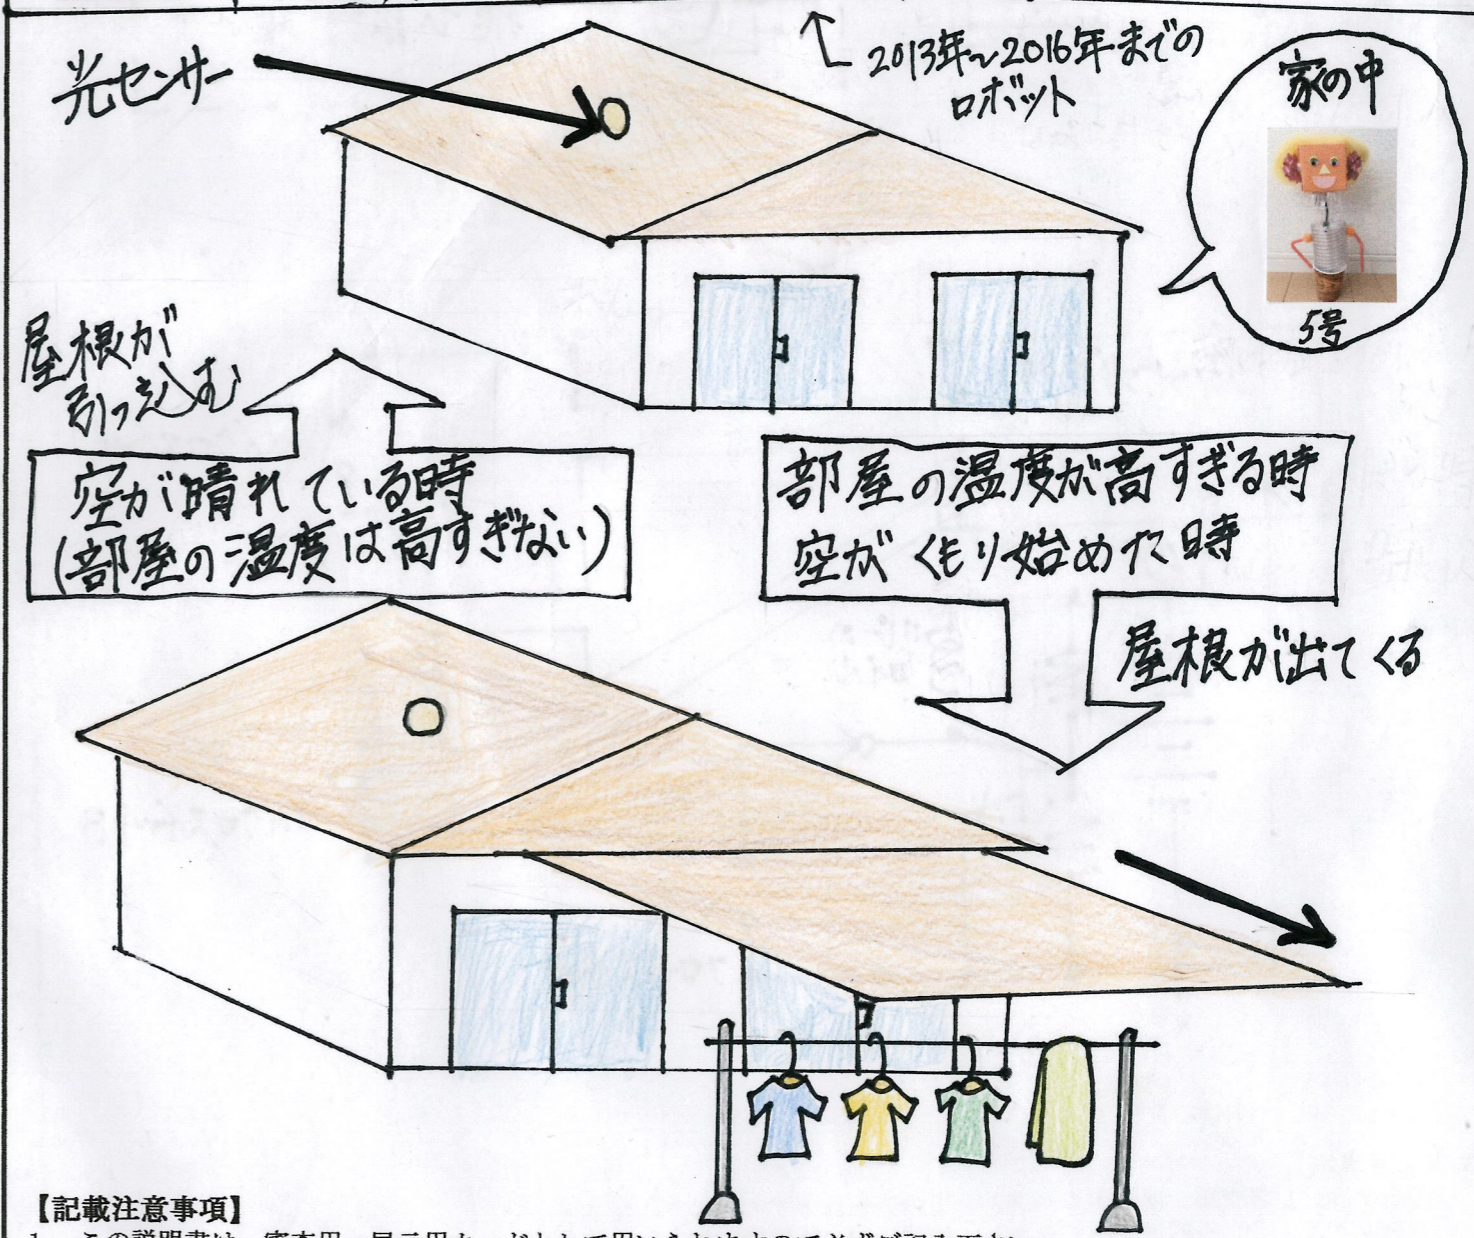 光センサー
2013年～2016年までの
ロボット
家の中
5号
屋根が
引っ込む
空が晴れている時
(部屋の温度は高すぎない)
部屋の温度が高すぎる時
空がくもり始めた時
屋根が出てくる
【記載注意事項】